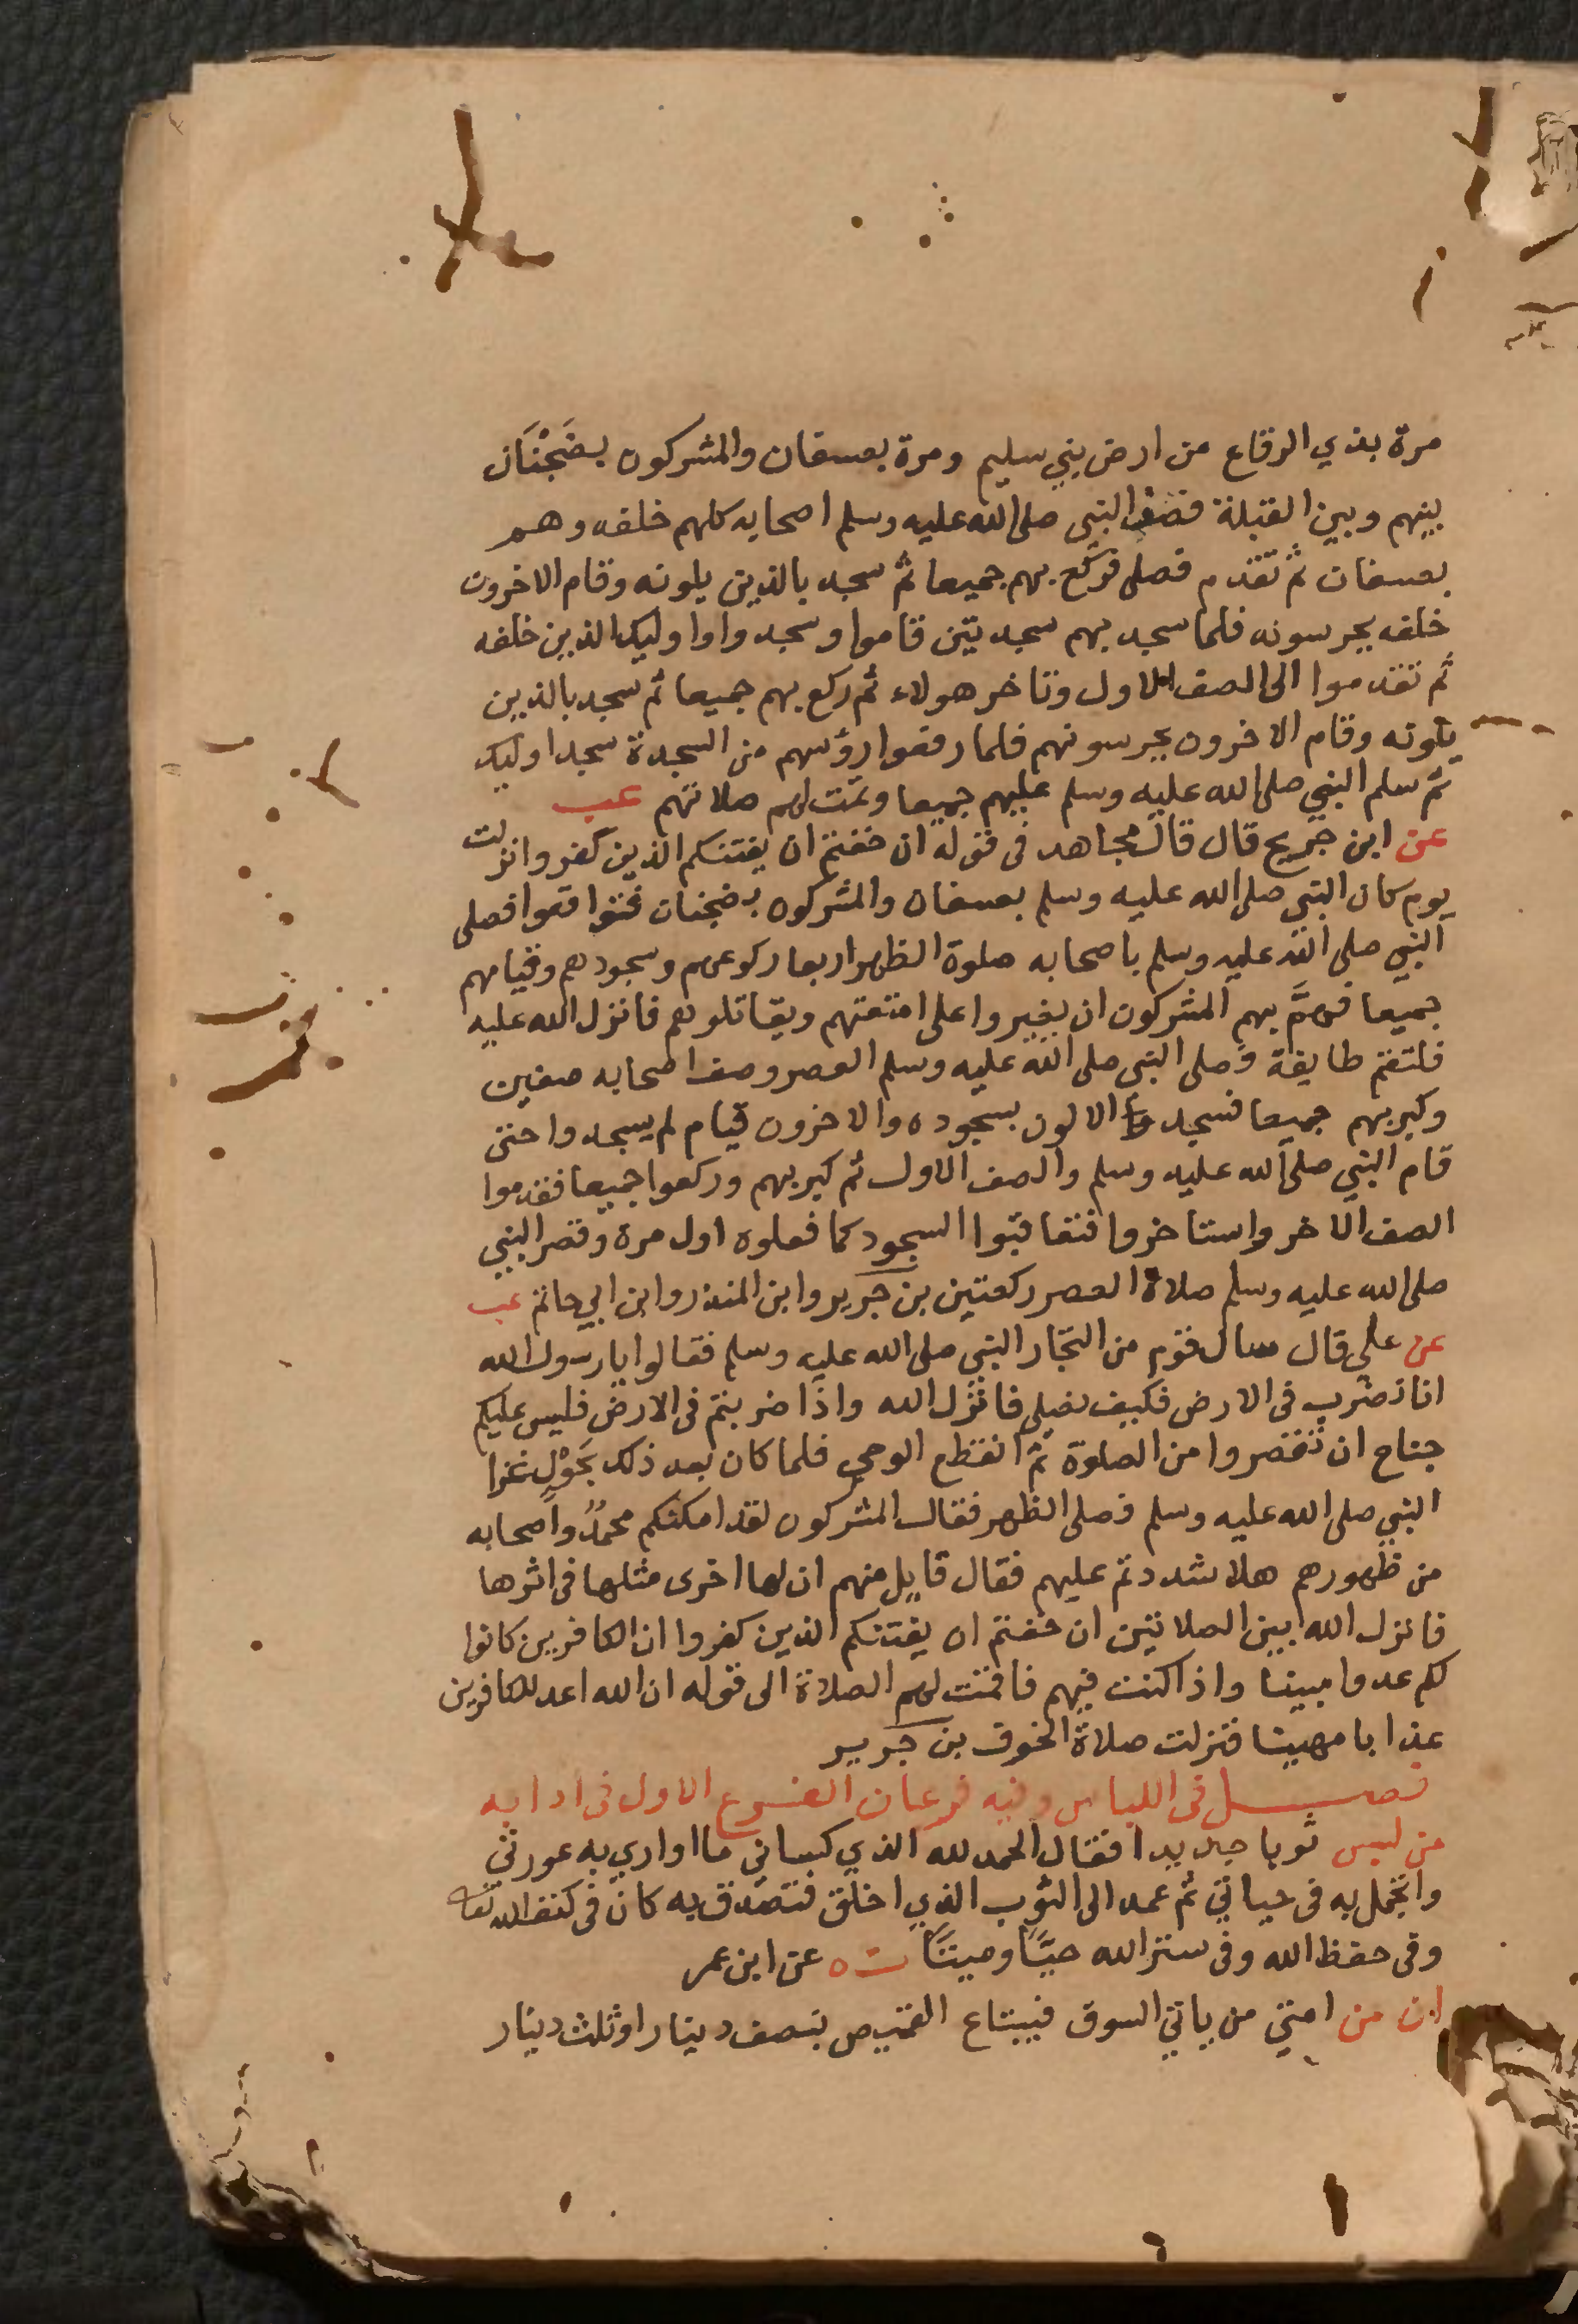 مرة بذي الرقاع من ارض بني سليم ومرة بعسفان والمشركون بضَجْنَان
بينهم وبين القبلة فصف النبي صلى الله عليه وسلم اصحابه كلهم خلفه وهم
بعسفان ثم تقدم فصلى فركع بهم جميعا ثم سجد بالذين يلونه وقام الاخرون
خلفه يحرسونه فلما سجد بهم سجدتين قاموا وسجدوا اوليك الذين خلفه
ثم تقدموا الى الصف الاول وتاخر هولاء ثم ركع بهم جميعا ثم سجد بالذين
يلونه وقام الاخرون يحرسونهم فلما رفعوا رؤسهم من السجدة سجد اوليك
ثم سلم النبي صلى الله عليه وسلم عليهم جميعا وتمت لهم صلاتهم عب
عن ابن جريج قال قال مجاهد في قوله ان خفتم ان يفتنكم الذين كفروا نزلت
يوم كان النبي صلى الله عليه وسلم بعسفان والمشركون بضجنان فتوافقوا فصلى
النبي صلى الله عليه وسلم باصحابه صلوة الظهر اربعا ركوعهم وسجودهم وقيامهم
جميعا فهمَّ بهم المشركون ان يغيروا على امتعتهم ويقاتلوهم فانزل الله عليه
فلتقم طايفة فصلى النبي صلى الله عليه وسلم العصر وصف اصحابه صفين
وكبر بهم جميعا فسجد الالون بسجوده والاخرون قيام لم يسجدوا حتى
قام النبي صلى الله عليه وسلم والصف الاول ثم كبر بهم وركعوا جميعا فقدموا
الصف الاخر واستاخروا فتعاقبوا السجود كما فعلوه اول مرة وقصر النبي
صلى الله عليه وسلم صلاة العصر ركعتين بن جرير وابن المنذر وابن ابي حاتم عب
عن علي قال سال قوم من التجار النبي صلى الله عليه وسلم فقالوا يا رسول الله
انا نضرب في الارض فكيف نصلي فانزل الله واذا ضربتم في الارض فليس عليكم
جناح ان تقصروا من الصلوة ثم انقطع الوحي فلما كان بعد ذلك بحَوْلٍ غزا
النبي صلى الله عليه وسلم فصلى الظهر فقال المشركون لقد امكنكم محمدٌ واصحابه
من ظهورهم هلا شددتم عليهم فقال قايل منهم ان لها اخرى مثلها في اثرها
فانزل الله بين الصلاتين ان خفتم ان يفتنكم الذين كفروا ان الكافرين كانوا
لكم عدوا مبينا واذا كنت فيهم فاقمت لهم الصلاة الى قوله ان الله اعد للكافرين
عذابا مهينا فنزلت صلاة الخوف بن جرير
فصل في اللباس وفيه فرعان الفرع الاول في ادابه
من لبس ثوبا جديدا فقال الحمد لله الذي كساني ما اواري به عورتي
واتجمل به في حياتي ثم عمد الى الثوب الذي اخلق فتصدق به كان في كنف الله تعا
وفي حفظ الله وفي ستر الله حيًّا وميتًا ت ه عن ابن عمر
ان من امتي من ياتي السوق فيبتاع القميص بنصف دينار او ثلث دينار